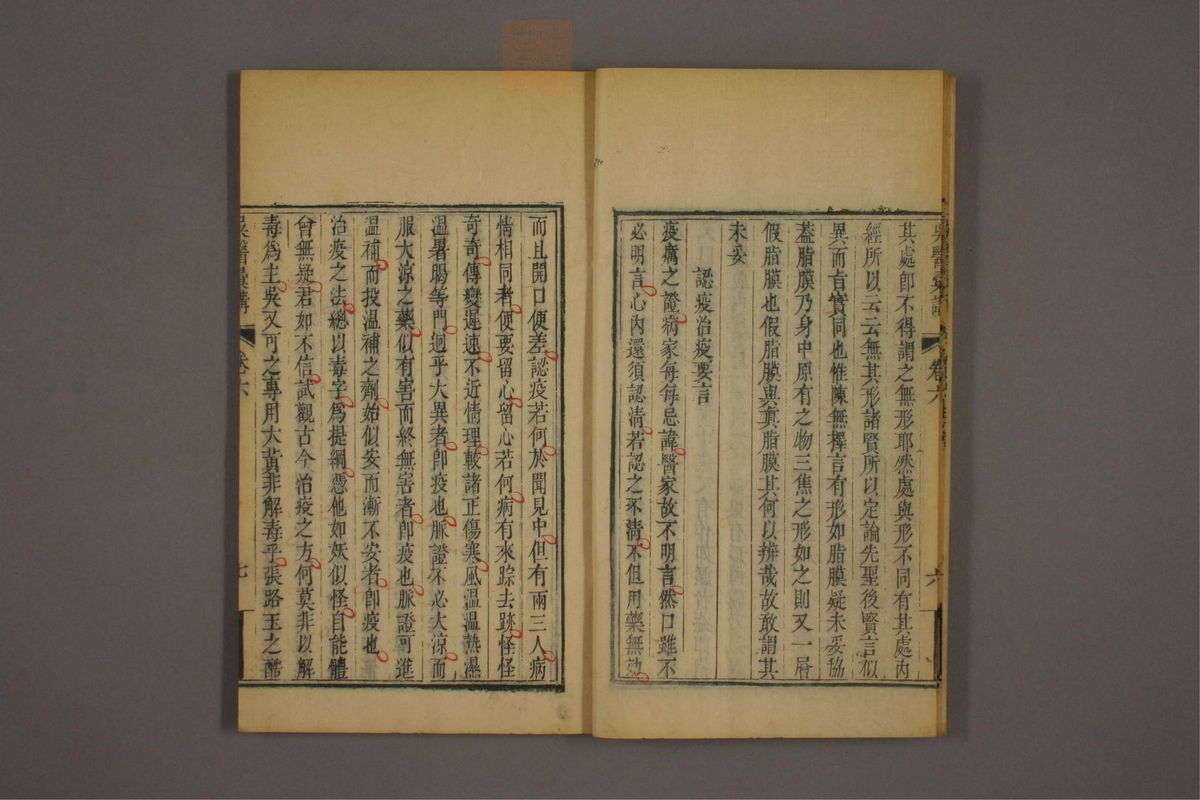 其處卽不得謂之無形耶然處與形不同有其處內
經所以云云無其形諸賢所以定論先聖後賢言似
異而旨實同也惟陳無擇言有形如脂膜疑未妥協
葢脂膜乃身中原有之物三焦之形如之則又一層
假脂膜也假脂膜與眞脂膜其何以辨哉故敢謂其
未妥
認疫治疫要言
疫厲之證病家每每忌諱醫家故不明言然口雖不
必明言心內還須認淸若認之不淸不但用藥無効
卷六
六
而且開口便差認疫若何於聞見中但有兩三人病
情相同者便要留心留心若何病有來踪去跡怪怪
奇奇傳變遲速不近情理較諸正傷寒風温温熱濕
温暑暍等門迥乎大異者卽疫也脈證不必大涼而
服大涼之藥似有害而終無害者卽疫也脈證可進
温補而投温補之劑始似安而漸不安者卽疫也
治疫之法總以毒字爲提綱憑他如妖似怪自能體
會無疑君如不信試觀古今治疫之方何莫非以解
毒爲主吳又可之專用大黃非解毒乎張路玉之酷
吳醫彙講
卷六
七